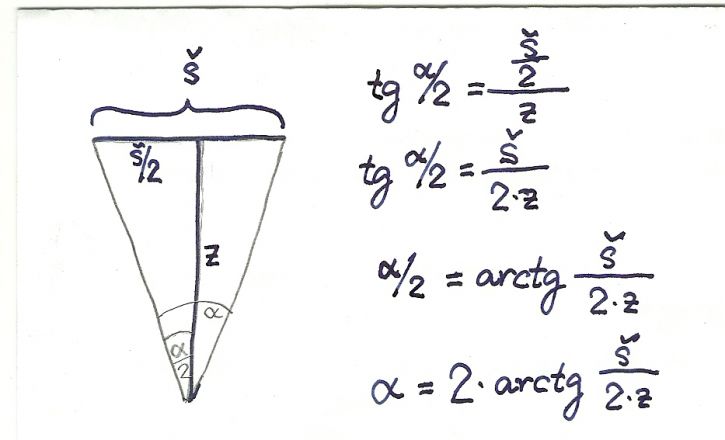 š
š/2
z
α
α/2
tg α/2 = š/2 / z
tg α/2 = š / 2·z
α/2 = arctg š / 2·z
α = 2· arctg š / 2·z